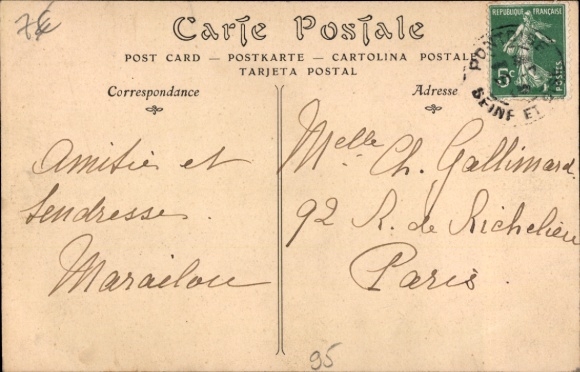 7€
Carte Postale
POST CARD — POSTKARTE — CARTOLINA POSTALE
TARJETA POSTAL
Correspondance
Amitiés et
tendresses.
Adresse
Melle Ch. Gallimard
92 R. de Richelieu
Paris.
REPUBLIQUE FRANÇAISE
5c
POSTES
SEINE ET
95